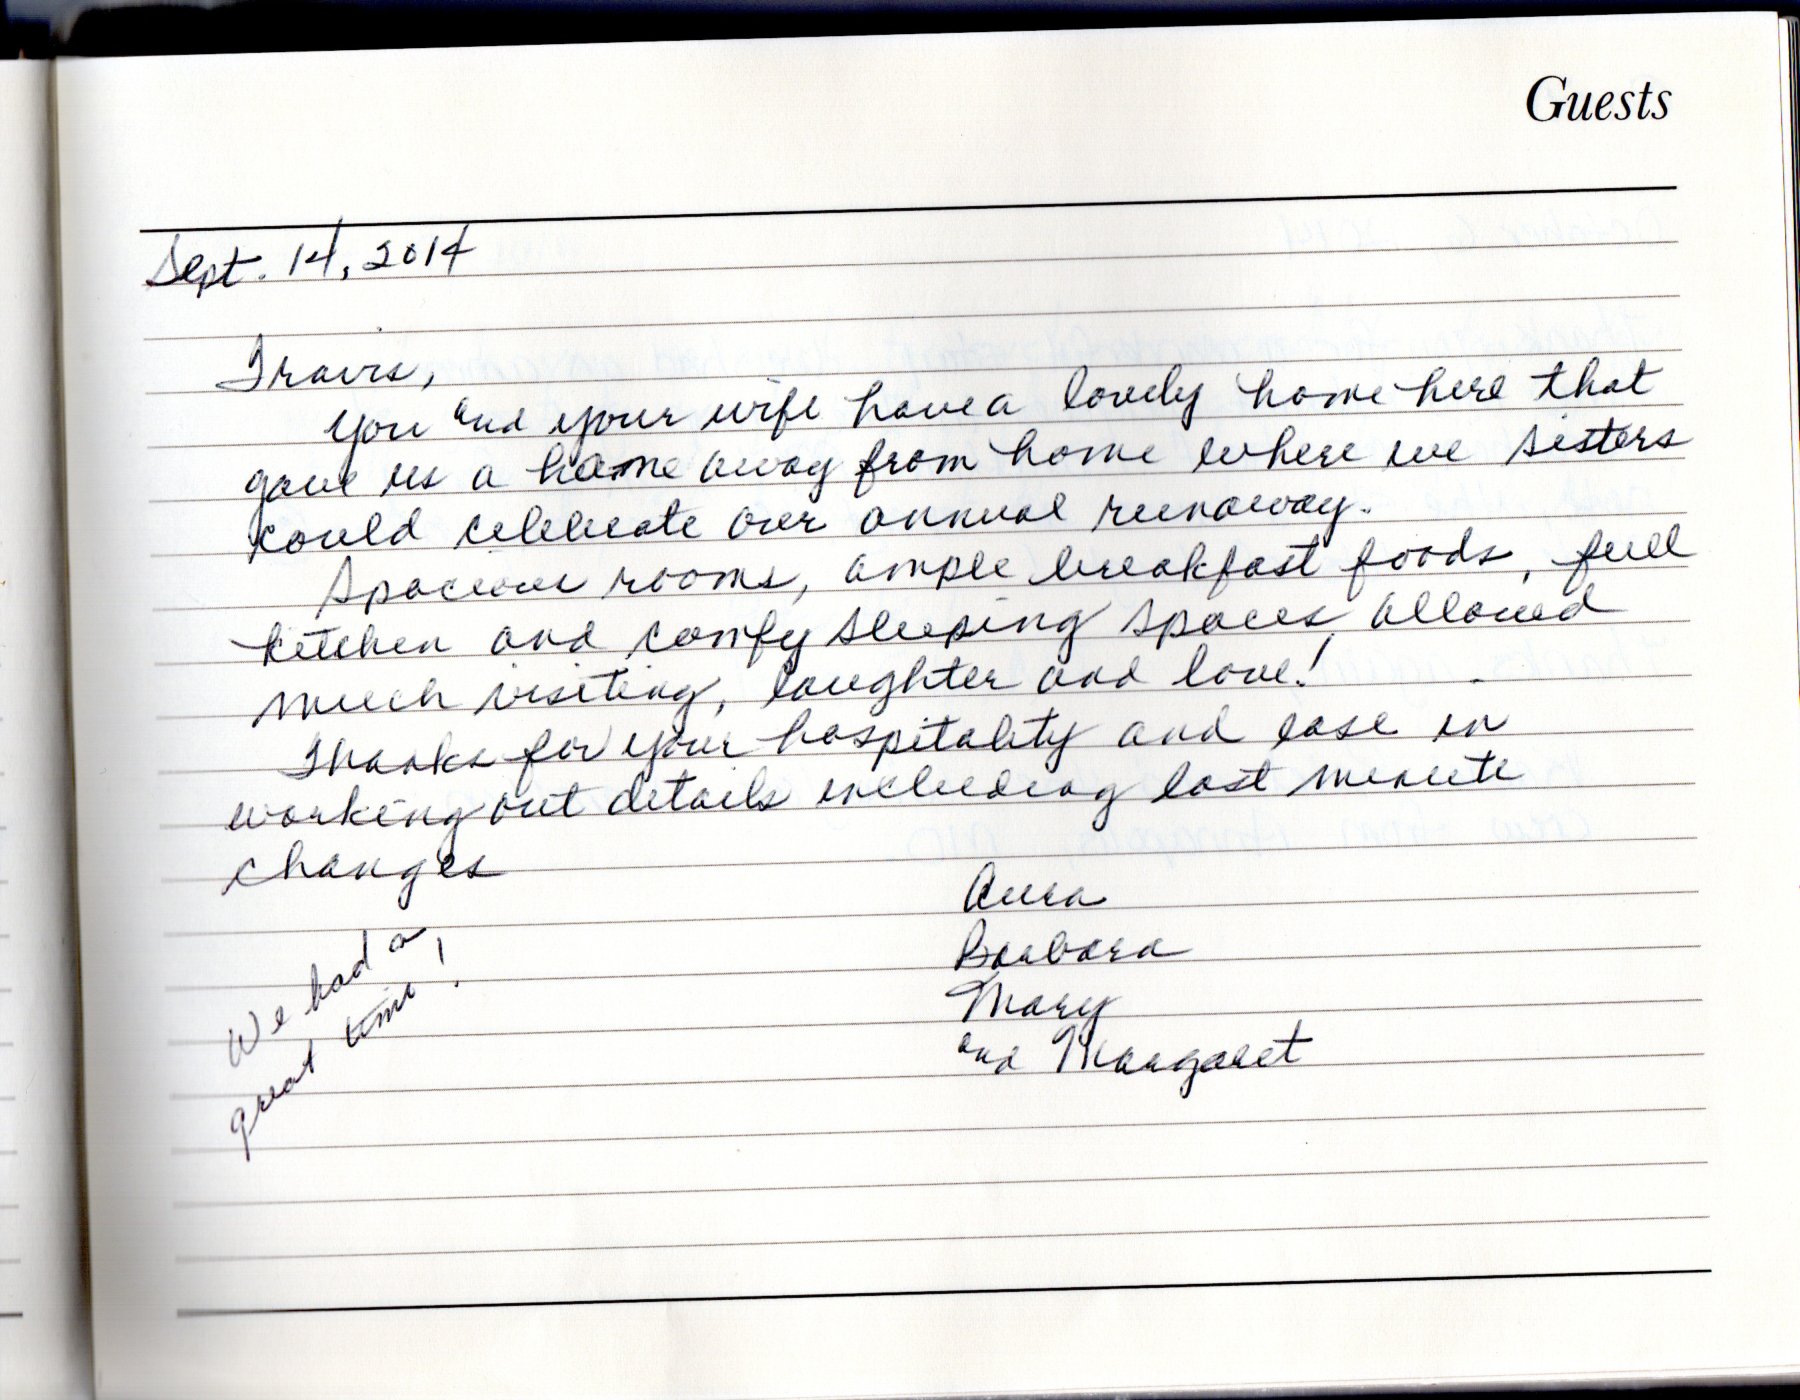 Guests
Sept. 14, 2014
Travis,
You and your wife have a lovely home here that
gave us a home away from home where we sisters
could celebrate our annual runaway.
Spacious rooms, ample breakfast foods, full
kitchen and comfy sleeping spaces allowed
much visiting, laughter and love!
Thanks for your hospitality and ease in
working out details including last minute
changes
Barbara
Mary
and Margaret
We had a
great time!